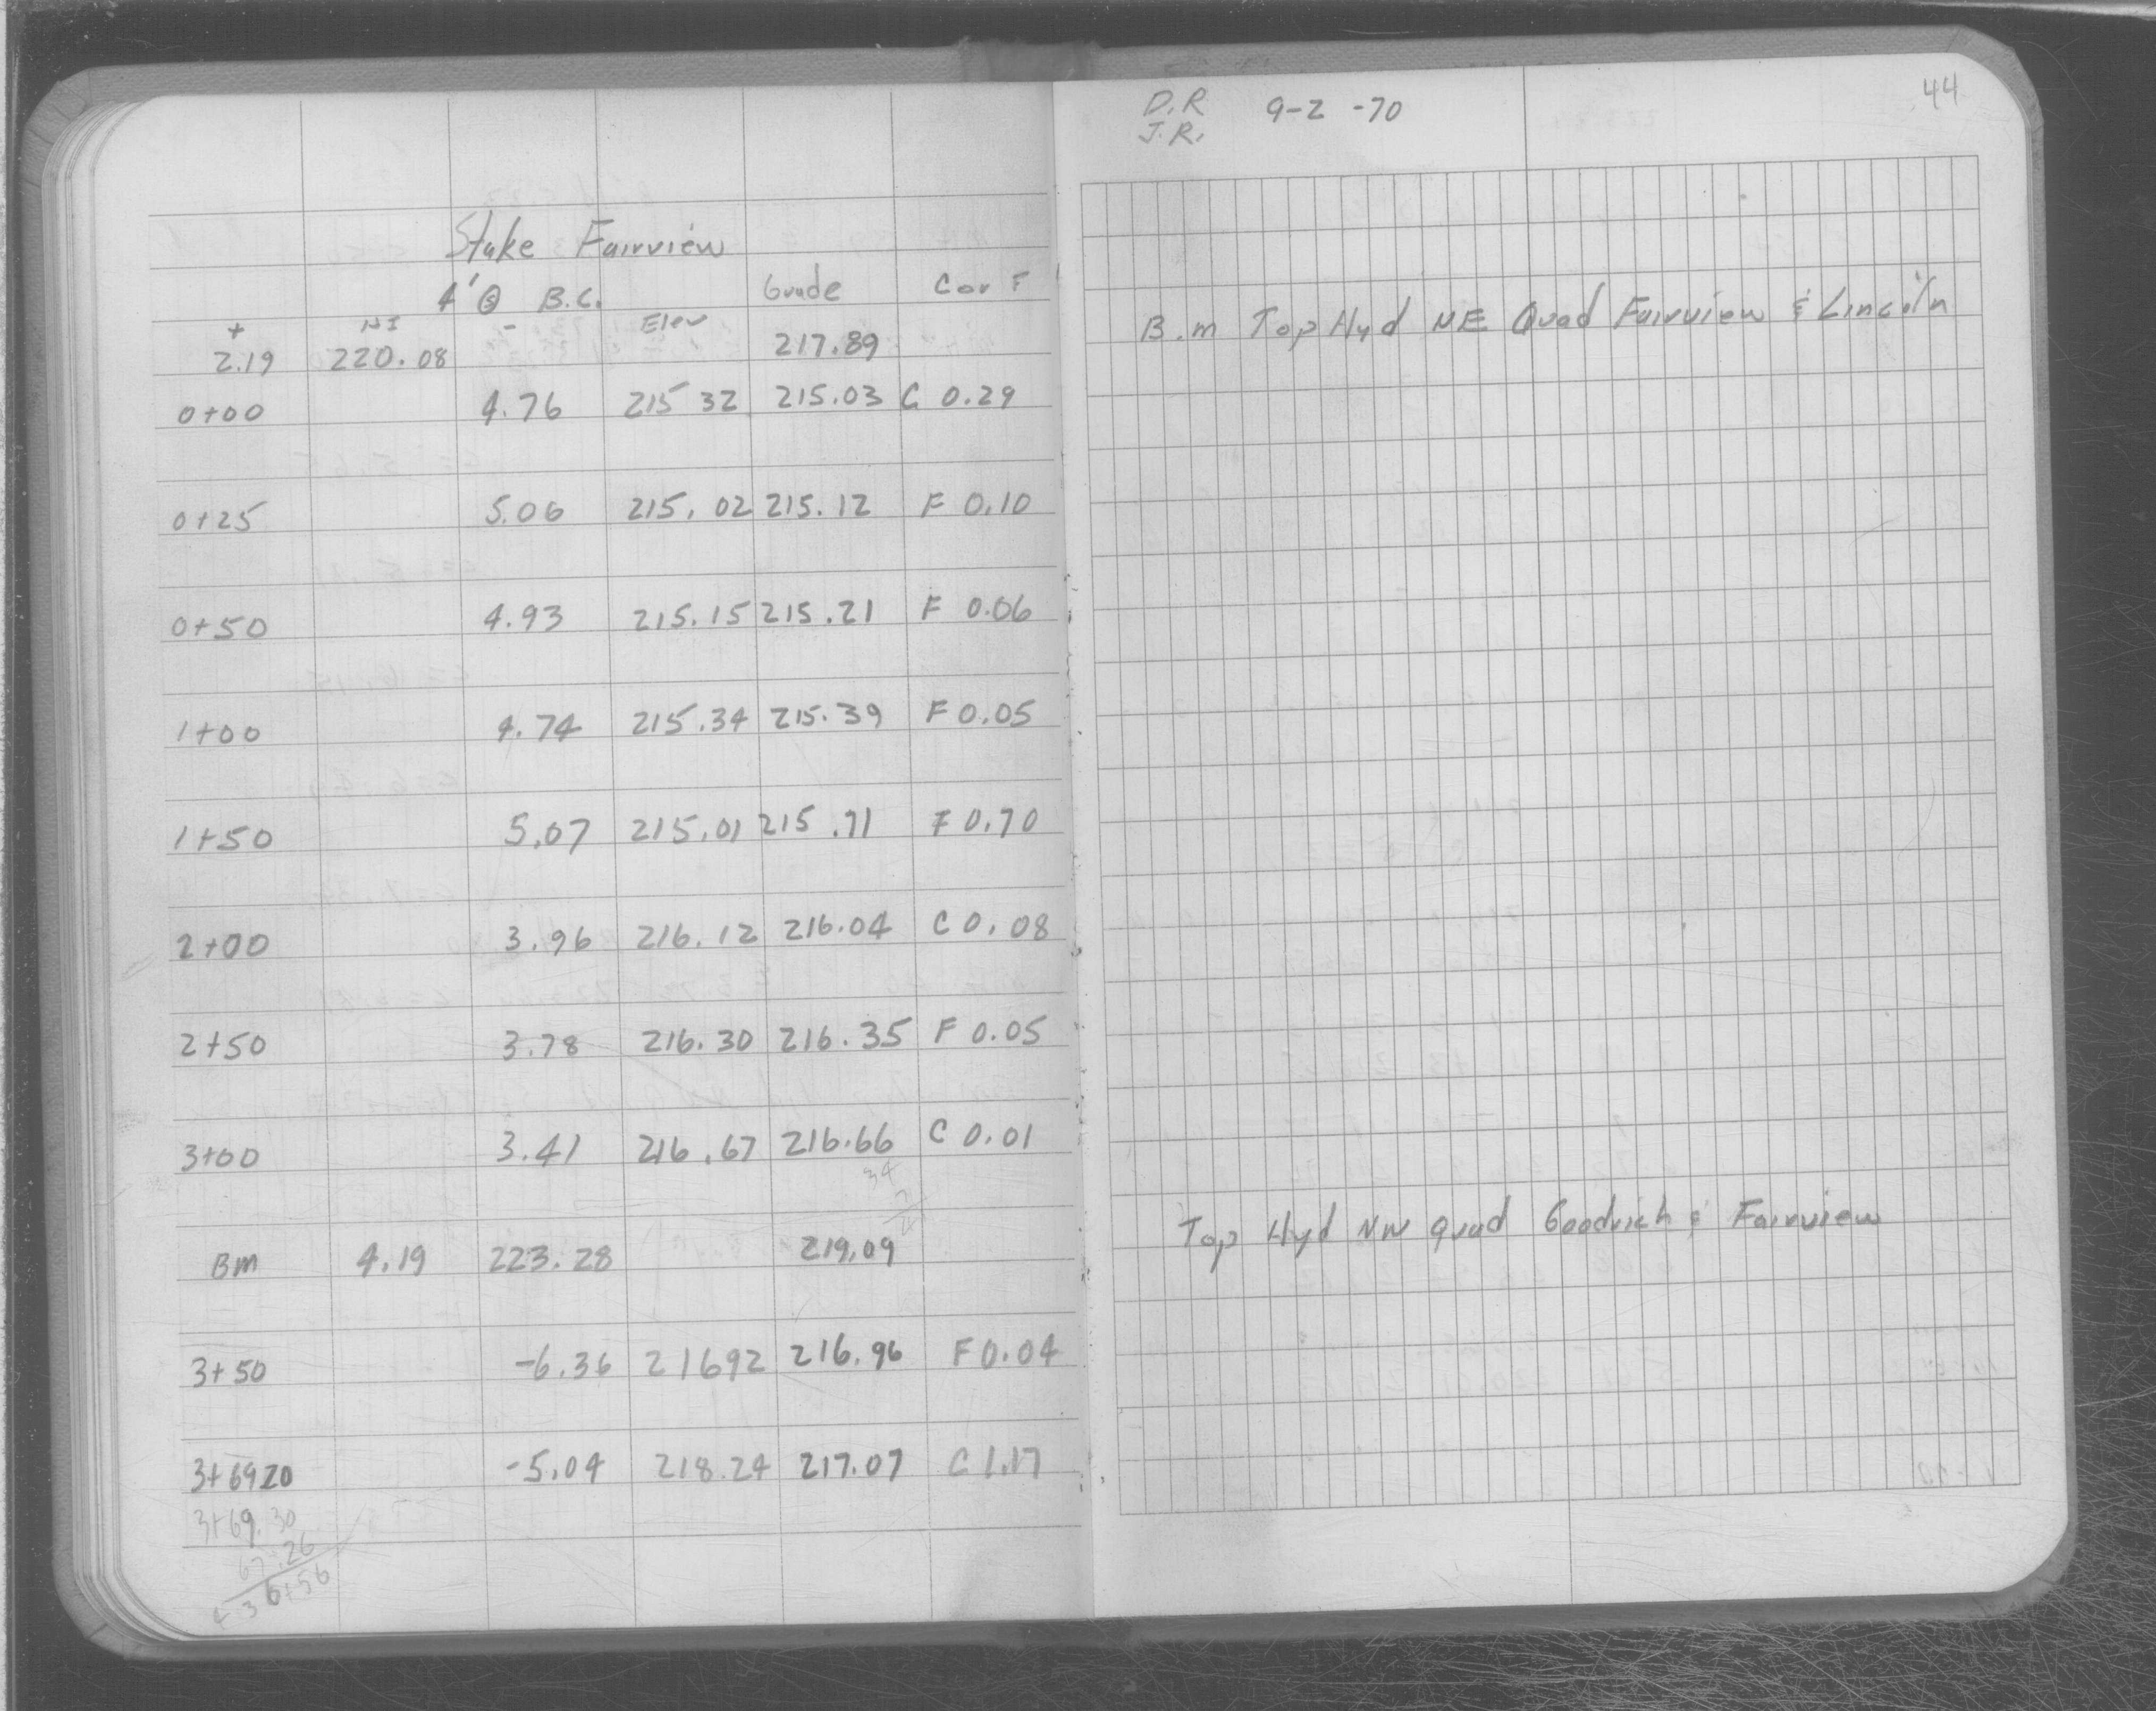 Stake Fairview
4' @ B.C. Grade C or F
+ HI - Elev
2.19 220.08 217.89
0+00 4.76 215 32 215.03 C 0.29
0+25 5.06 215.02 215.12 F 0.10
0+50 4.93 215.15 215.21 F 0.06
1+00 4.74 215.34 215.39 F 0.05
1+50 5.07 215.01 215.71 F 0.70
2+00 3.96 216.12 216.04 C 0.08
2+50 3.78 216.30 216.35 F 0.05
3+00 3.41 216.67 216.66 C 0.01
34
BM 4.19 223.28 219.09
3+50 -6.36 21692 216.96 F 0.04
3+6920 -5.04 218.24 217.07 C 1.17
3+69.30
67.26
36+56
D.R 9-2-70
J.R.
44
B.m Top Hyd NE Quad Fairview & Lincoln
Top Hyd NW Quad Goodrich & Fairview